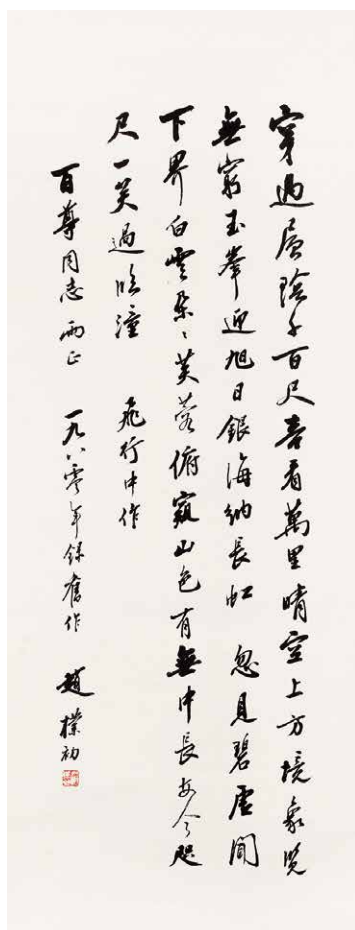 穿過層陰千百尺喜看萬里晴空上方境象览
無窮玉峯迎旭日銀海納長虹 忽見碧虛開
下界白雲朵〻芙蓉俯窺山色有無中長安今咫
尺一笑過臨潼 飛行中作
百尊同志兩正 一九八零年錄舊作 趙樸初